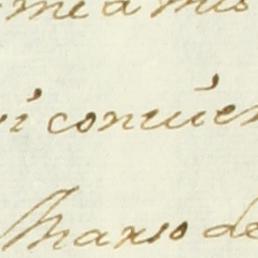 me a mis
i conuien
Mario de